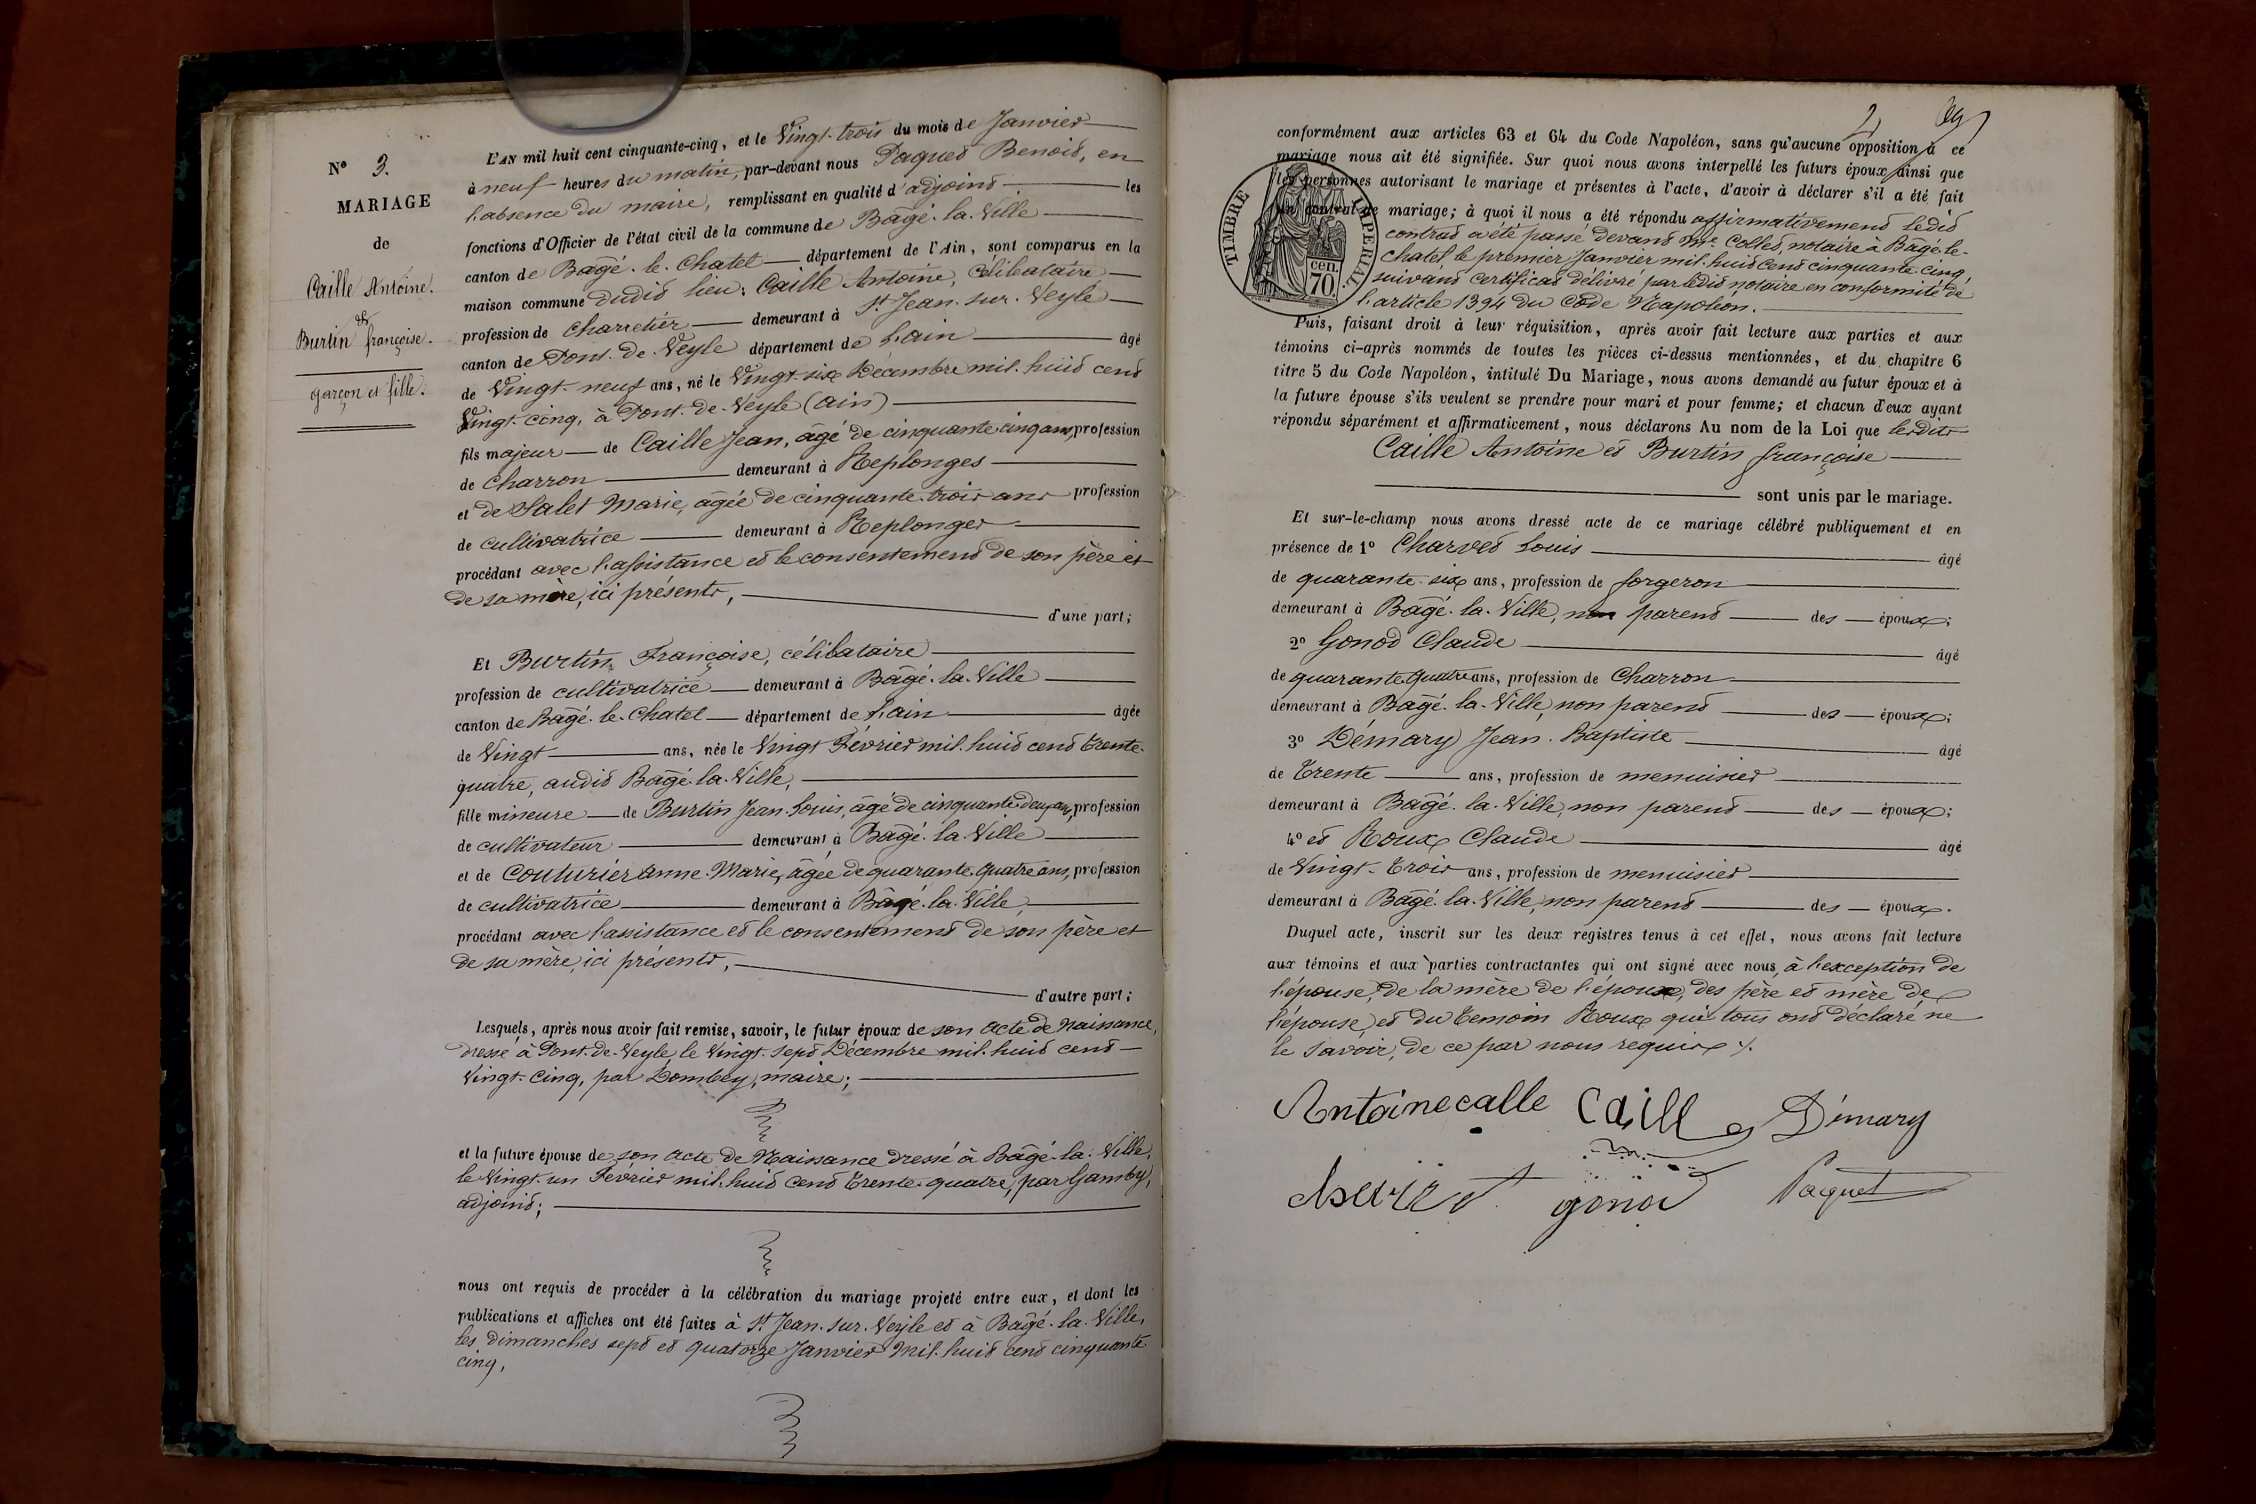 N° 3.
MARIAGE
de
Caille Antoine.
&
Burtin françoise.
garçon et fille.
L'AN mil huit cent cinquante-cinq, et le Vingt-trois du mois de Janvier
à neuf heures du matin, par-devant nous Paquet Benoit, en
l'absence du maire, remplissant en qualité d'adjoint les
fonctions d'Officier de l'état civil de la commune de Bâgé-la-Ville
canton de Bâgé-le-Chatel département de l'Ain, sont comparus en la
maison commune dudit lieu: Caille Antoine, célibataire
profession de charretier demeurant à St Jean-sur-Veyle
canton de Pont-de-Veyle département de l'ain âgé
de Vingt-neuf ans, né le Vingt-six Décembre mil-huit cent
Vingt-cinq, à Pont-de-Veyle (ain)
fils majeur de Caille Jean, âgé de cinquante-cinq ans, profession
de Charron demeurant à Replonges
et de Salet Marie, âgée de cinquante-trois ans profession
de cultivatrice demeurant à Replonges
procédant avec l'assistance et le consentement de son père et
de sa mère, ici présents,
d'une part;
Et Burtin Françoise, célibataire
profession de cultivatrice demeurant à Bâgé-la-Ville
canton de Bâgé-le-Chatel département de l'ain âgée
de Vingt ans, née le Vingt Février mil-huit cent trente-
quatre, audit Bâgé-la-Ville,
fille mineure de Burtin Jean-Louis, âgé de cinquante-deux ans, profession
de cultivateur demeurant à Bâgé-la-Ville
et de Couturier anne-Marie, âgée de quarante-quatre ans, profession
de cultivatrice demeurant à Bâgé-la-Ville,
procédant avec l'assistance et le consentement de son père et
de sa mère, ici présents,
d'autre part;
Lesquels, après nous avoir fait remise, savoir, le futur époux de son acte de Naissance,
dressé à Pont-de-Veyle, le Vingt-sept Décembre mil-huit cent
Vingt-cinq, par Dombey, maire;
et la future épouse de son acte de Naissance dressé à Bâgé-la-Ville,
le Vingt-un Février mil-huit cent trente-quatre, par Gamby,
adjoint;
nous ont requis de procéder à la célébration du mariage projeté entre eux, et dont les
publications et affiches ont été faites à St Jean-sur-Veyle et à Bâgé-la-Ville,
les dimanches sept et quatorze Janvier mil-huit cent cinquante
cinq,
2
conformément aux articles 63 et 64 du Code Napoléon, sans qu'aucune opposition à ce
mariage nous ait été signifiée. Sur quoi nous avons interpellé les futurs époux ainsi que
les personnes autorisant le mariage et présentes à l'acte, d'avoir à déclarer s'il a été fait
un contrat de mariage; à quoi il nous a été répondu affirmativement ledit
contrat a été passé devant Me Collet, notaire à Bâgé-le-
chatel le premier Janvier mil-huit cent cinquante-cinq,
suivant certificat délivré par ledit notaire en conformité de
l'article 1394 du Code Napoléon.
TIMBRE IMPERIAL.
cen.
70.
Puis, faisant droit à leur réquisition, après avoir fait lecture aux parties et aux
témoins ci-après nommés de toutes les pièces ci-dessus mentionnées, et du chapitre 6
titre 5 du Code Napoléon, intitulé Du Mariage, nous avons demandé au futur époux et à
la future épouse s'ils veulent se prendre pour mari et pour femme; et chacun d'eux ayant
répondu séparément et affirmativement, nous déclarons Au nom de la Loi que lesdits
Caille Antoine et Burtin françoise
sont unis par le mariage.
Et sur-le-champ nous avons dressé acte de ce mariage célébré publiquement et en
présence de 1° Charvet Louis âgé
de quarante-six ans, profession de forgeron
demeurant à Bâgé-la-Ville, non parent des époux;
2° Gonod Claude âgé
de quarante-quatre ans, profession de Charron
demeurant à Bâgé-la-Ville, non parent des époux;
3° Démary Jean-Baptiste âgé
de trente ans, profession de menuisier
demeurant à Bâgé-la-Ville, non parent des époux;
4° et Roux Claude âgé
de Vingt-trois ans, profession de menuisier
demeurant à Bâgé-la-Ville, non parent des époux.
Duquel acte, inscrit sur les deux registres tenus à cet effet, nous avons fait lecture
aux témoins et aux parties contractantes qui ont signé avec nous, à l'exception de
l'épouse, de la mère de l'époux, des père et mère de
l'épouse, et du temoin Roux qui tous ont déclaré ne
le savoir, de ce par nous requis.
Antoine calle Caill Démary
charvet gonod Paquet